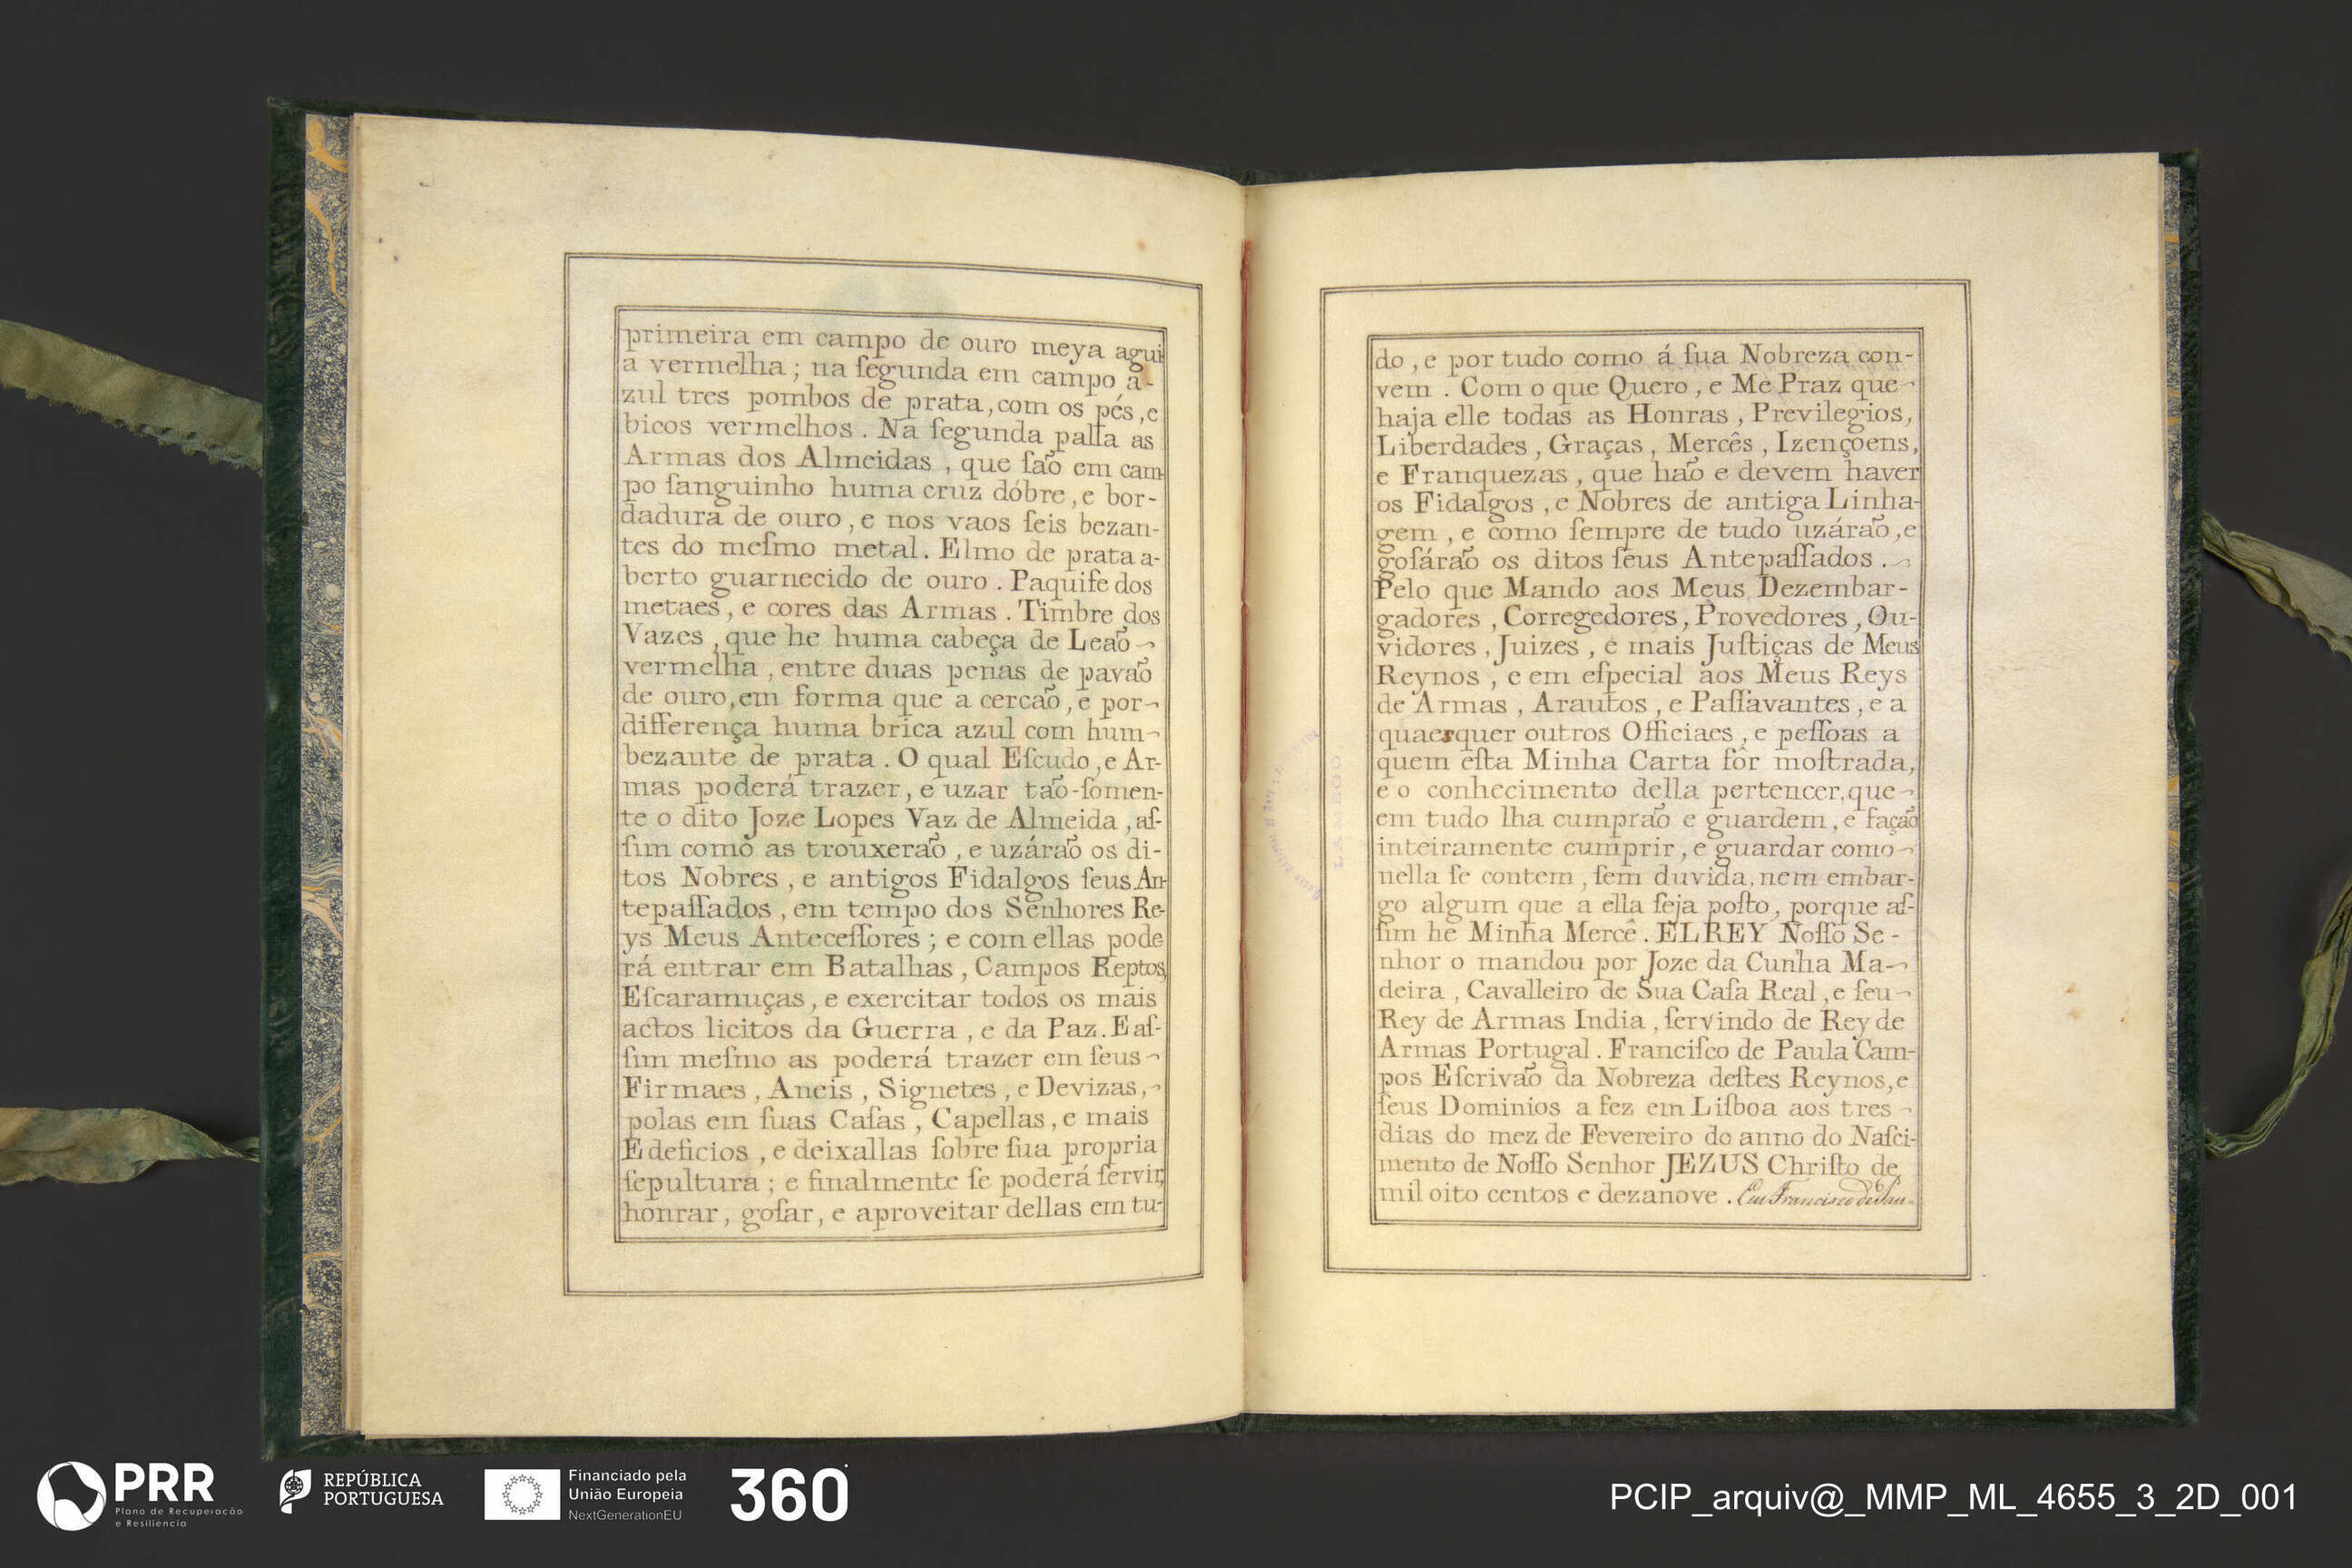 primeira em campo de ouro meya agui
a vermelha ; na ſegunda em campo a-
zul tres pombos de prata, com os pés, e
bicos vermelhos . Na ſegunda palla as
Armas dos Almeidas , que ſaõ em cam
po ſanguinho huma cruz dóbre, e bor-
dadura de ouro , e nos vaos ſeis bezan-
tes do meſmo metal. Elmo de prata a-
berto guarnecido de ouro . Paquife dos
metaes , e cores das Armas . Timbre dos
Vazes , que he huma cabeça de Leaõ ¬
vermelha , entre duas penas de pavaõ
de ouro, em forma que a cercaõ , e por¬
differença huma brica azul com hum¬
bezante de prata . O qual Eſcudo , e Ar-
mas poderá trazer, e uzar taõ-ſomen-
te o dito Joze Lopes Vaz de Almeida , aſ-
ſim como as trouxeraõ , e uzáraõ os di-
tos Nobres , e antigos Fidalgos ſeus An-
tepaſſados , em tempo dos Senhores Re-
ys Meus Anteceſſores ; e com ellas pode
rá entrar em Batalhas , Campos Reptos,
Eſcaramuças, e exercitar todos os mais
actos licitos da Guerra , e da Paz. E aſ-
ſim meſmo as poderá trazer em ſeus ¬
Firmaes , Aneis , Signetes , e Devizas, ¬
polas em ſuas Caſas , Capellas, e mais
Edeficios , e deixallas ſobre ſua propria
ſepultura ; e finalmente ſe poderá ſervir,
honrar, goſar, e aproveitar dellas em tu-
do , e por tudo como á ſua Nobreza con-
vem . Com o que Quero , e Me Praz que ¬
haja elle todas as Honras , Previlegios,
Liberdades , Graças , Mercês , Izençoens,
e Franquezas , que haõ e devem haver
os Fidalgos , e Nobres de antiga Linha-
gem , e como ſempre de tudo uzáraõ , e
goſáraõ os ditos ſeus Antepaſſados . ¬
Pelo que Mando aos Meus Dezembar-
gadores , Corregedores, Provedores , Ou-
vidores , Juizes , e mais Juſtiças de Meus
Reynos , e em eſpecial aos Meus Reys
de Armas , Arautos , e Paſſavantes , e a
quaesquer outros Officiaes , e peſſoas a
quem eſta Minha Carta fôr moſtrada,
e o conhecimento della pertencer, que ¬
em tudo lha cumpraõ e guardem , e façaõ
inteiramente cumprir , e guardar como ¬
nella ſe contem , ſem duvida, nem embar-
go algum que a ella ſeja poſto, porque aſ-
ſim he Minha Mercê . ELREY Noſſo Se -
nhor o mandou por Joze da Cunha Ma-¬
deira , Cavalleiro de Sua Caſa Real , e ſeu ¬
Rey de Armas India , ſervindo de Rey de
Armas Portugal . Franciſco de Paula Cam-
pos Eſcrivaõ da Nobreza deſtes Reynos, e
ſeus Dominios a fez em Liſboa aos tres ¬
dias do mez de Fevereiro do anno do Naſci-
mento de Noſſo Senhor JEZUS Chriſto de
mil oito centos e dezanove . Eu Francisco de Pau=
LAMEGO
PRR
Plano de Recuperação
e Resiliência
REPÚBLICA
PORTUGUESA
Financiado pela
União Europeia
NextGenerationEU
360
PCIP_arquiv@_MMP_ML_4655_3_2D_001